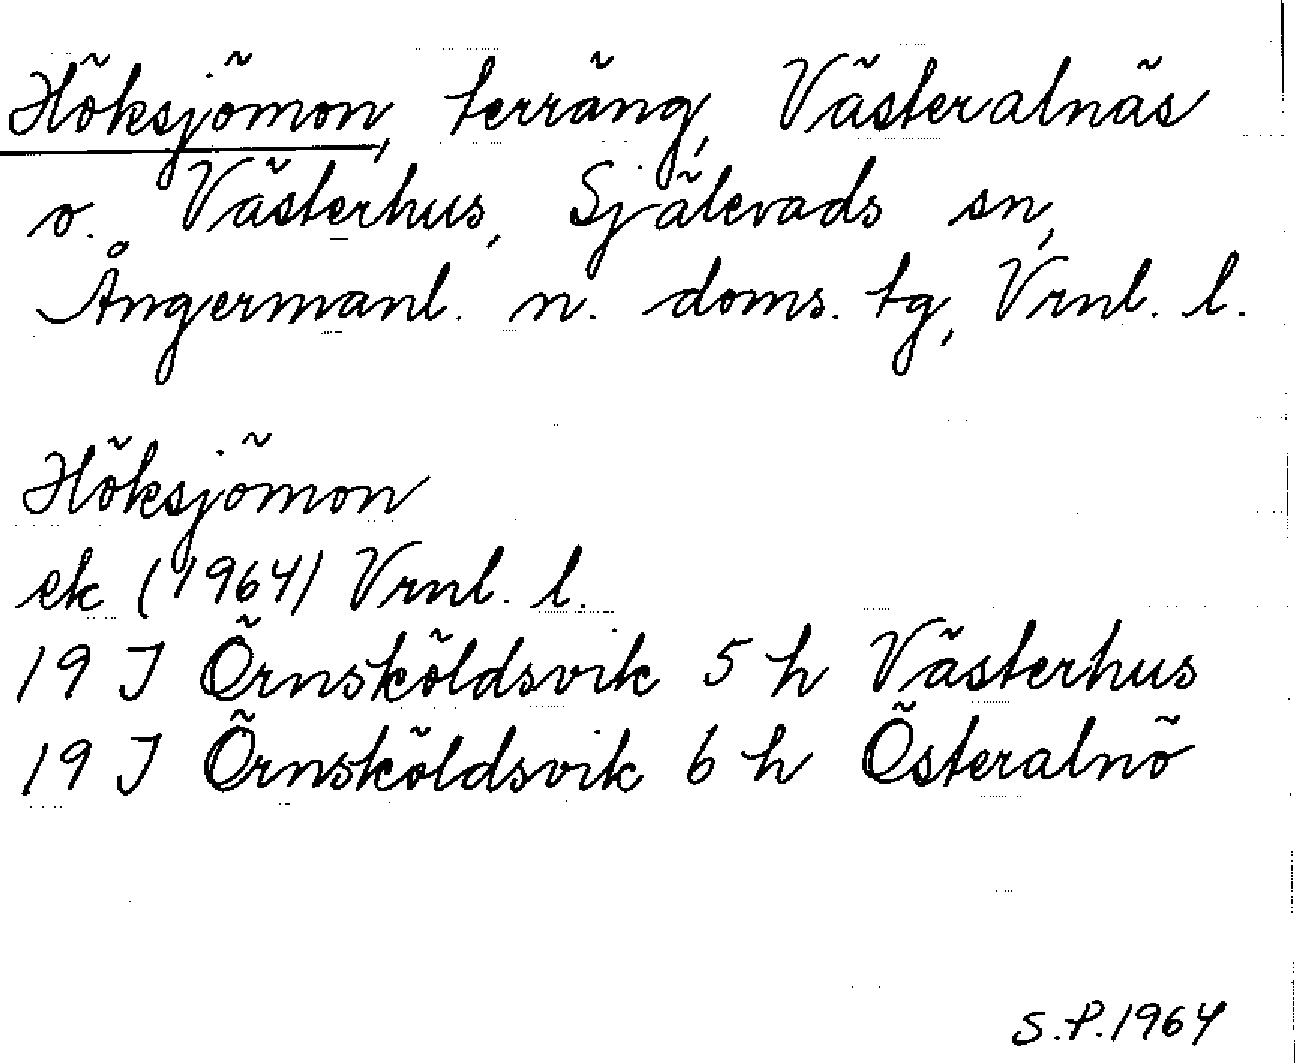 Höksjömon, terräng, Västeralnäs
o. Västerhus, Själevads sn,
Ångermanl. n. doms. tg, Vrnl. l.
Höksjömon
ek (1964) Vrnl. l.
19 J Örnsköldsvik 5 h Västerhus
19 J Örnsköldsvik 6 h Österalnö
S.P.1964